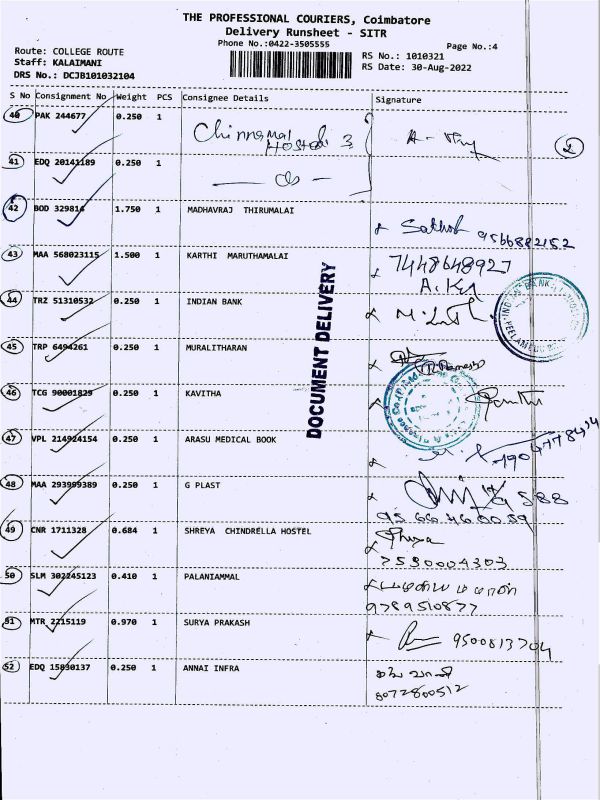 THE PROFESSIONAL COURIERS, Coimbatore
Delivery Runsheet - SITR
Phone No.:0422-3505555
Page No.:4
Route: COLLEGE ROUTE
Staff: KALAIMANI
DRS No.: DCJB101032104
RS No.: 1010321
RS Date: 30-Aug-2022
S No Consignment No. Weight PCS Consignee Details Signature
40 PAK 244677 0.250 1 Chinnamal Hostel 3
2
41 EDQ 20141189 0.250 1 — do —
42 BOD 329814 1.750 1 MADHAVRAJ THIRUMALAI
9566882152
43 MAA 568023115 1.500 1 KARTHI MARUTHAMALAI 7448648927
44 TRZ 51310532 0.250 1 INDIAN BANK
INDIAN BANK
45 TRP 6494261 0.250 1 MURALITHARAN
46 TCG 90001829 0.250 1 KAVITHA
47 VPL 214924154 0.250 1 ARASU MEDICAL BOOK
48 MAA 293999389 0.250 1 G PLAST
49 CNR 1711328 0.684 1 SHREYA CHINDRELLA HOSTEL
7530004303
50 SLM 302245123 0.410 1 PALANIAMMAL
9789510877
51 MTR 2215119 0.970 1 SURYA PRAKASH 9500813704
52 EDQ 15830137 0.250 1 ANNAI INFRA
8072800512
DOCUMENT DELIVERY